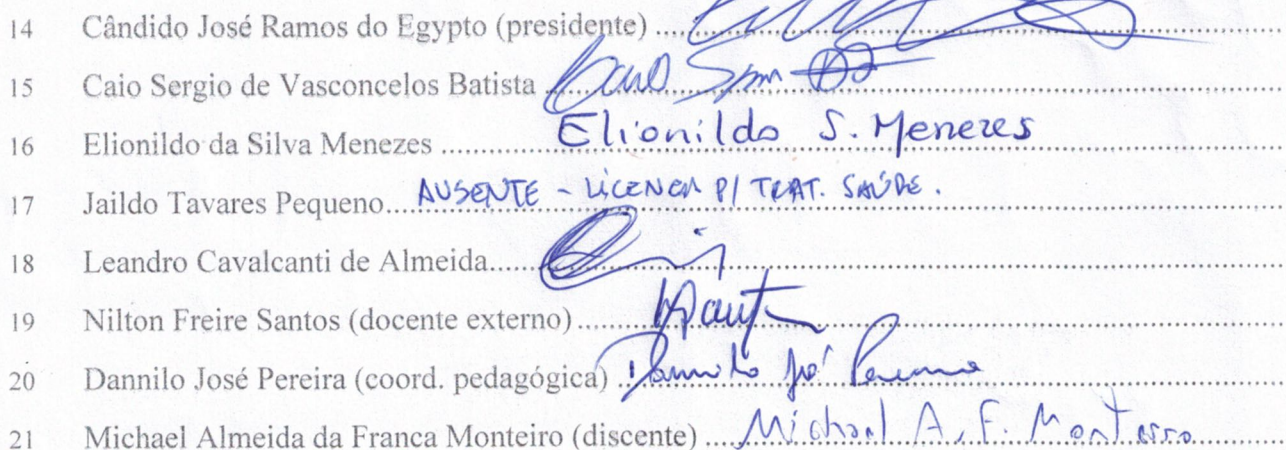 14 Cândido José Ramos do Egypto (presidente) ....
15 Caio Sergio de Vasconcelos Batista ....
16 Elionildo da Silva Menezes .... Elionildo S. Menezes
17 Jaildo Tavares Pequeno.... AUSENTE - LICENCA P/ TRAT. SAÚDE.
18 Leandro Cavalcanti de Almeida....
19 Nilton Freire Santos (docente externo) ....
20 Dannilo José Pereira (coord. pedagógica) .... Dannilo José Pereira
21 Michael Almeida da Franca Monteiro (discente) .... Michael A. F. Monteiro